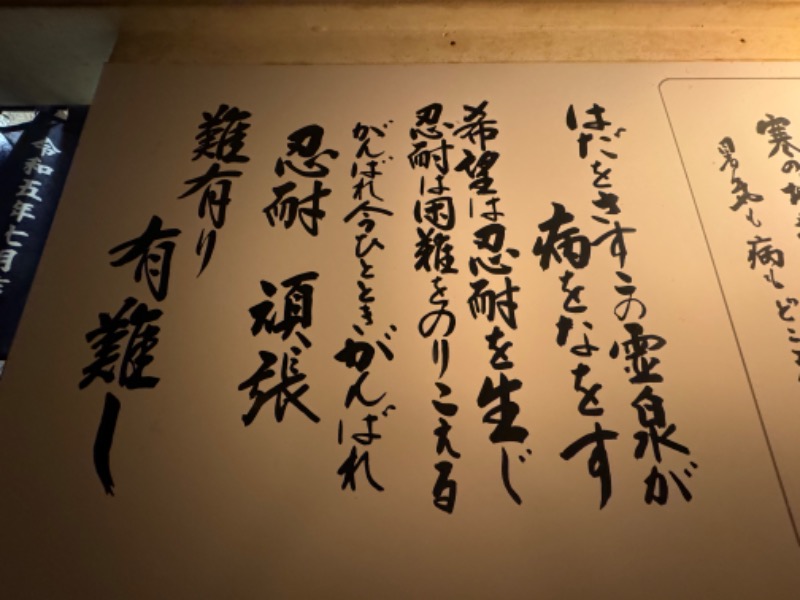 寒の地
暑気も病もどこ
はだをさすこの霊泉が
病をなをす
希望は忍耐を生じ
忍耐は困難をのりこえる
がんばれ今ひとときがんばれ
忍耐 頑張
難有り
有難し
令和五年七月吉